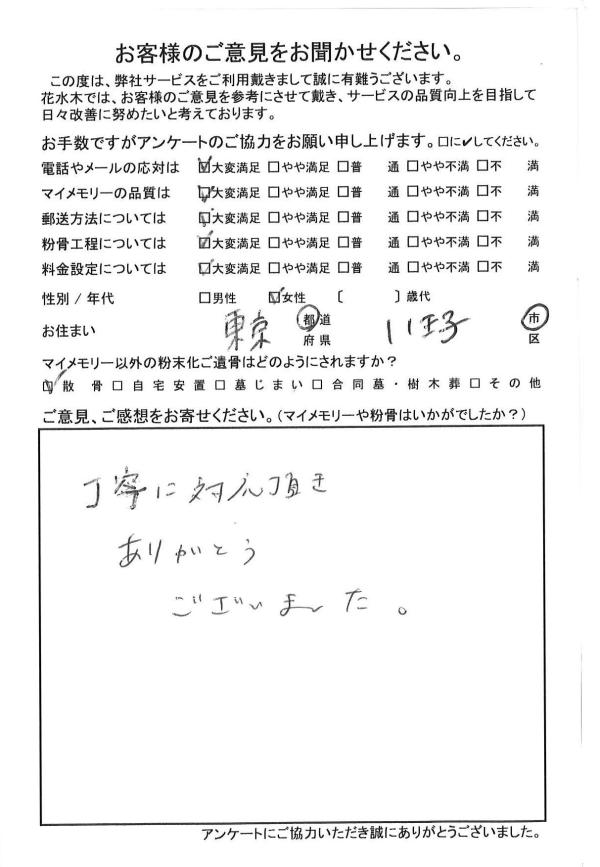 お客様のご意見をお聞かせください。
この度は、弊社サービスをご利用戴きまして誠に有難うございます。
花水木では、お客様のご意見を参考にさせて戴き、サービスの品質向上を目指して
日々改善に努めたいと考えております。
お手数ですがアンケートのご協力をお願い申し上げます。□に✔してください。
電話やメールの応対は ☑大変満足 □やや満足 □普 通 □やや不満 □不 満
マイメモリーの品質は ☑大変満足 □やや満足 □普 通 □やや不満 □不 満
郵送方法については ☑大変満足 □やや満足 □普 通 □やや不満 □不 満
粉骨工程については ☑大変満足 □やや満足 □普 通 □やや不満 □不 満
料金設定については ☑大変満足 □やや満足 □普 通 □やや不満 □不 満
性別 / 年代 □男性 ☑女性 〔 〕歳代
お住まい 東京 都道府県 八王子 市区
マイメモリー以外の粉末化ご遺骨はどのようにされますか?
☑散 骨 □自宅安置 □墓じまい □合同墓・樹木葬 □その他
ご意見、ご感想をお寄せください。(マイメモリーや粉骨はいかがでしたか?)
丁寧に対応頂き
ありがとう
ございました。
アンケートにご協力いただき誠にありがとうございました。